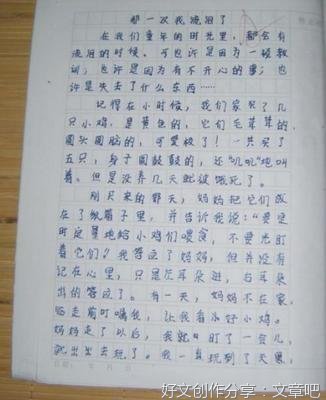 那一次我流泪了
在我们童年的时光里，都会有
流泪的时候。可也许是因为一顿教
训；也许是因为有不开心的事；也
许是失去了什么东西……
记得在小时候，我们家买了几
只小鸡，是黄色的，它们毛茸茸的，
圆头圆脑的，可爱极了！一共买了
五只，身子圆鼓鼓的，还“叽叽”地叫
着。但是没养几天就被饿死了。
刚买来的那天，妈妈把它们放
在了纸箱子里，并告诉我说：“要定
时定量地给小鸡们喂食，不要光盯
着它们”我答应了妈妈，但并没有
记在心里，只是左耳朵进，右耳朵
出的答应了。有一天，妈妈不在家，
临走前叮嘱我，让我看好小鸡。
妈妈走了以后，我就盯了一会儿，
就出去玩了。我一直玩到了天黑，
日期： 年 月 日
好文创作分享：文章吧